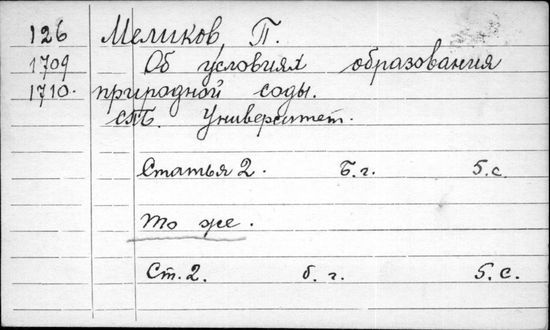 126 Меликов П.
1709 Об условиях образования
1710. природной соды.
СПб. Университет.
Статья 2. Б.г. 5.с.
То же.
Ст. 2. б. г. 5. с.